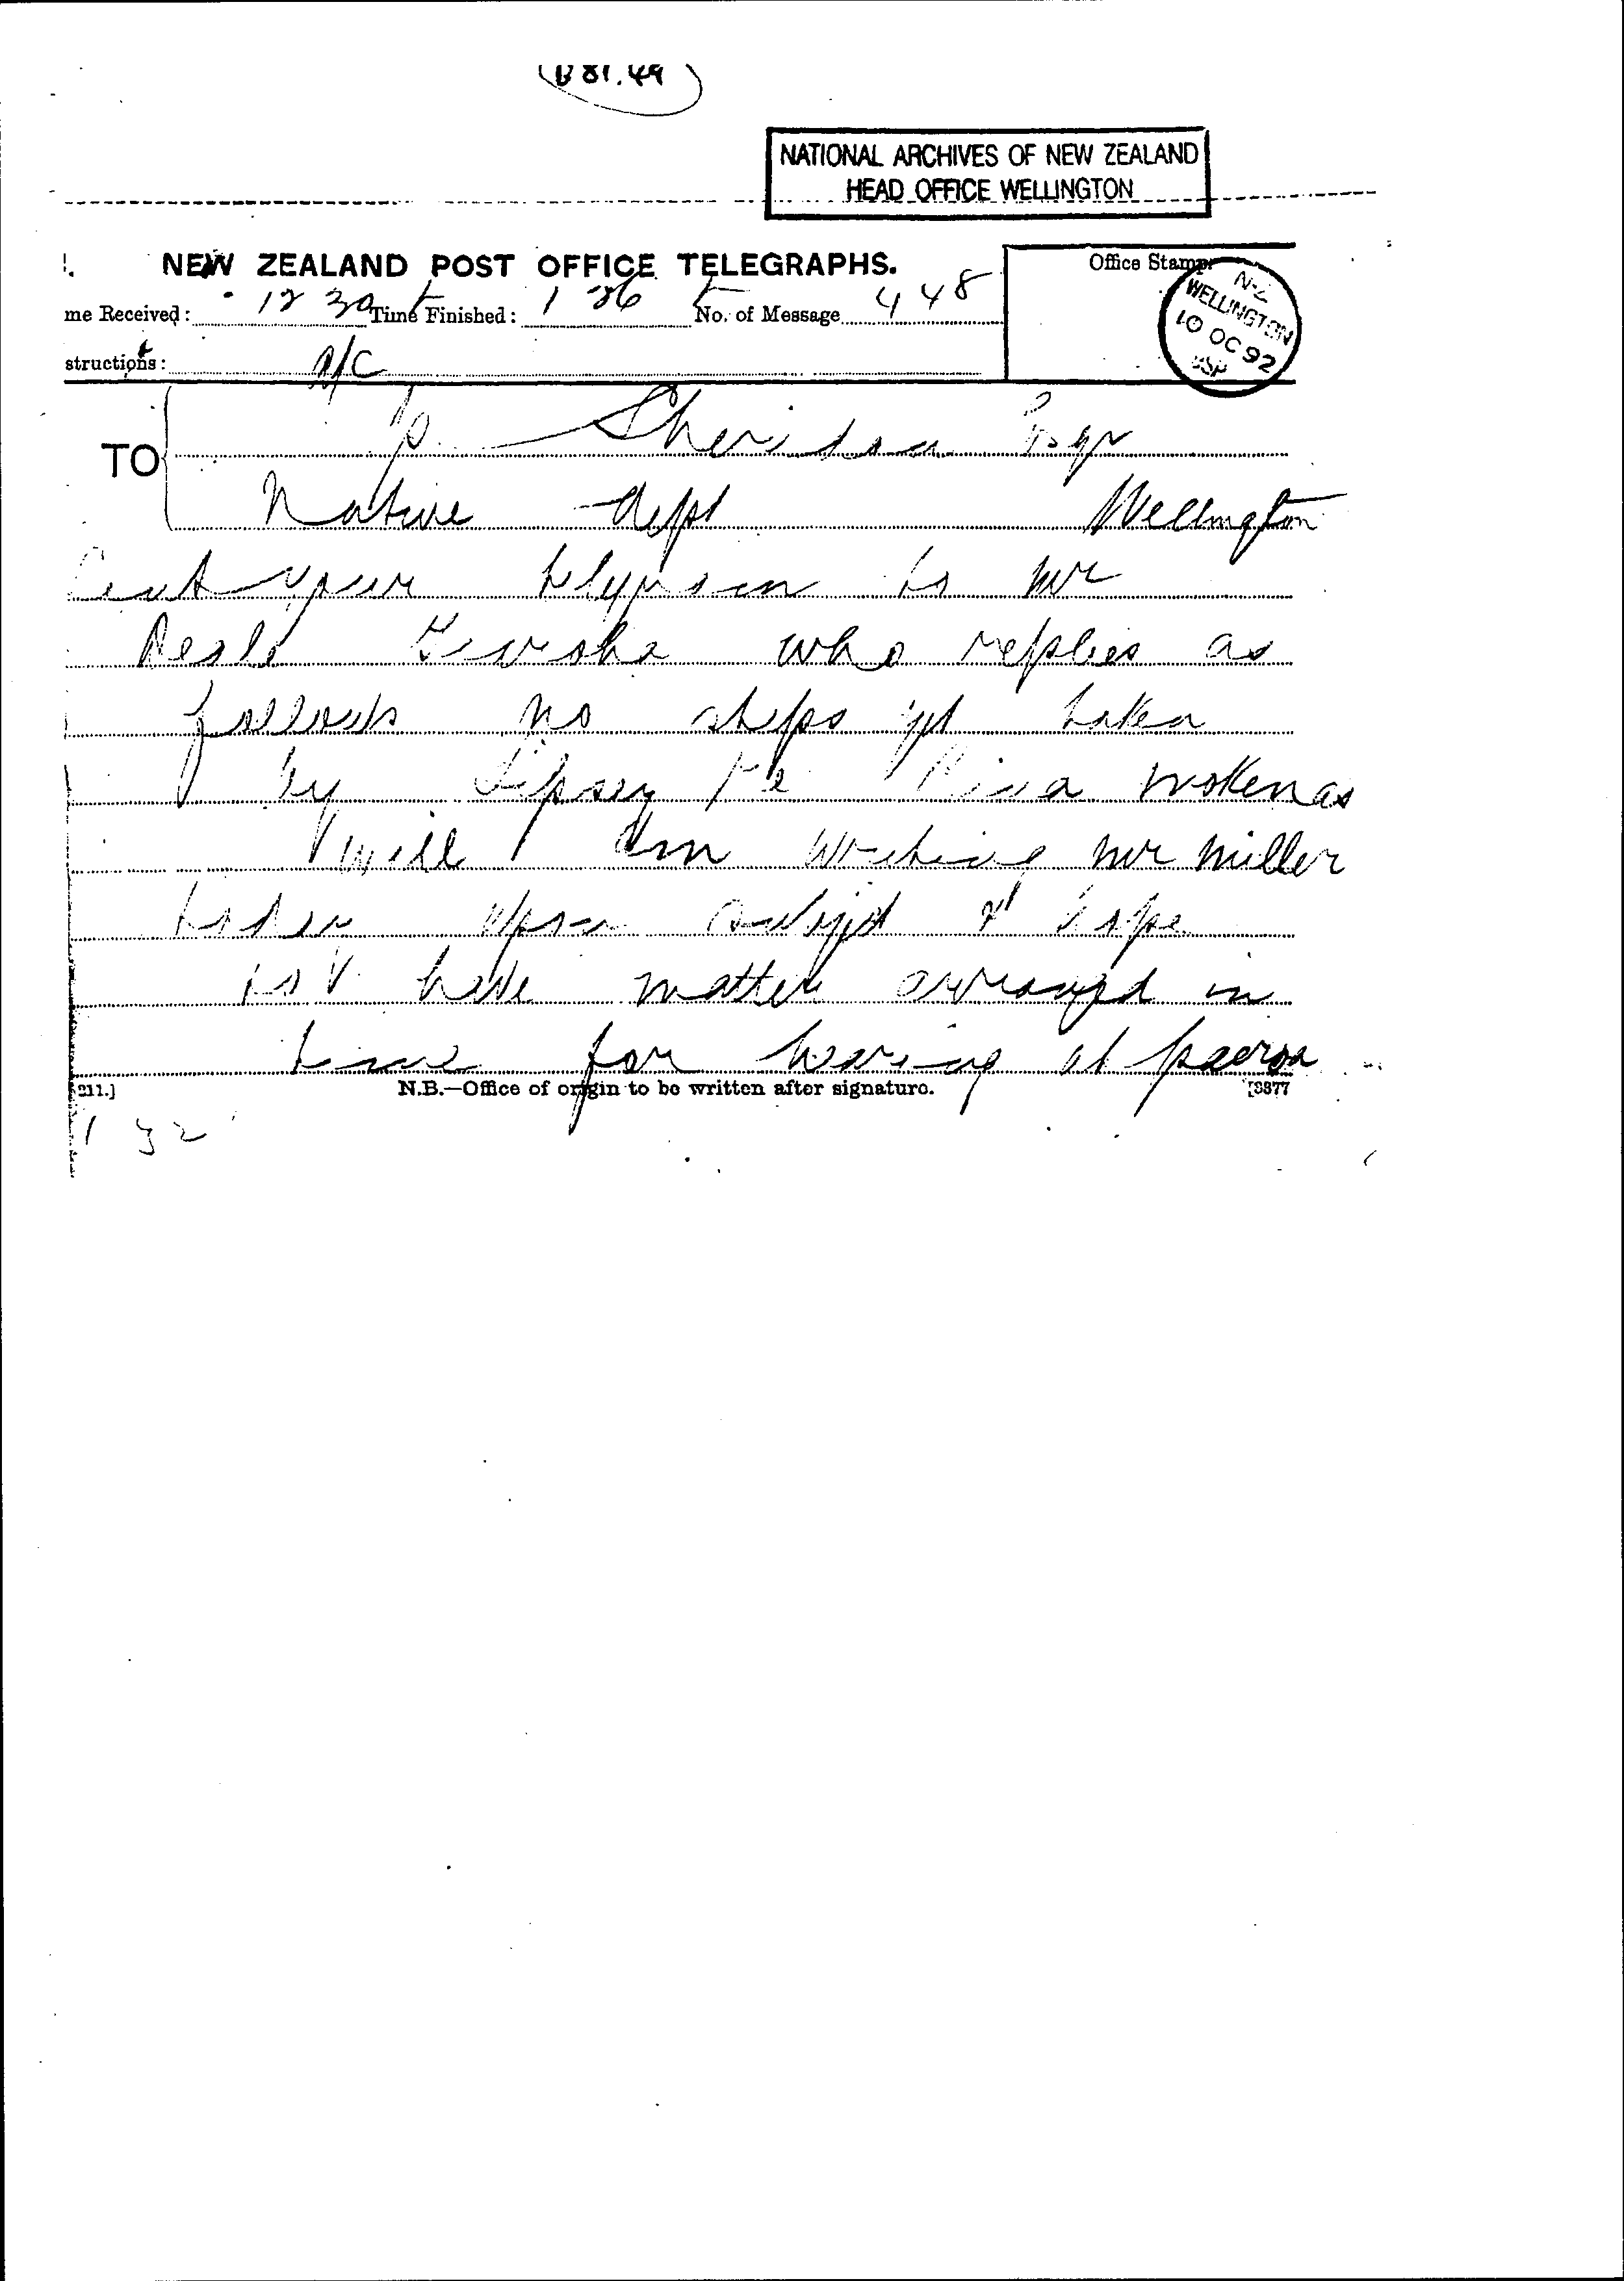 (B 81.49)
NATIONAL ARCHIVES OF NEW ZEALAND
HEAD OFFICE WELLINGTON
NEW ZEALAND POST OFFICE TELEGRAPHS.
me Received: 12 30 Time Finished: 1 36 No. of Message 448
Office Stamp:
N.Z
WELLINGTON
10 OC 92
structions: A/C
TO P Sheridan Esqr
Native dept Wellington
Sent your telegram to Mr
Deals Te aroha who replies as
follows no steps yet taken
by Lipsey re mokenas
will Am writing mr miller
today upon subject & hope
to have matter arranged in
time for hearing at paeroa
211.] N.B.—Office of origin to be written after signature. [3377
1 32